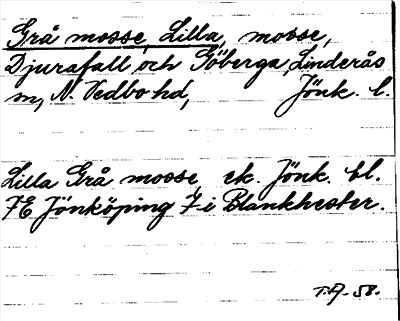 Grå mosse, Lilla, mosse,
Djurafall och Göberga, Linderås
sn, N. Vedbo hd, Jönk. l.
Lilla Grå mosse, ek. Jönk. bl.
7E Jönköping 7 i Blankhester.
T.A. 58.